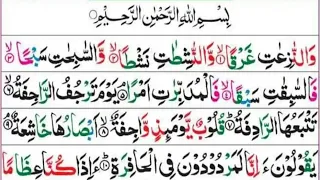 بِسْمِ اللهِ الرَّحْمٰنِ الرَّحِيْمِ
وَالنّٰزِعٰتِ غَرْقًا ۙ﴿۱﴾ وَّالنّٰشِطٰتِ نَشْطًا ۙ﴿۲﴾ وَّالسّٰبِحٰتِ سَبْحًا ۙ﴿۳﴾
فَالسّٰبِقٰتِ سَبْقًا ۙ﴿۴﴾ فَالْمُدَبِّرٰتِ اَمْرًا ۘ﴿۵﴾ يَوْمَ تَرْجُفُ الرَّاجِفَةُ ۙ﴿۶﴾
تَتْبَعُهَا الرَّادِفَةُ ؕ﴿۷﴾ قُلُوْبٌ يَّوْمَئِذٍ وَّاجِفَةٌ ۙ﴿۸﴾ اَبْصَارُهَا خَاشِعَةٌ ۘ﴿۹﴾
يَقُوْلُوْنَ ءَاِنَّا لَمَرْدُوْدُوْنَ فِى الْحَافِرَةِ ؕ﴿۱۰﴾ ءَاِذَا كُنَّا عِظَامًا